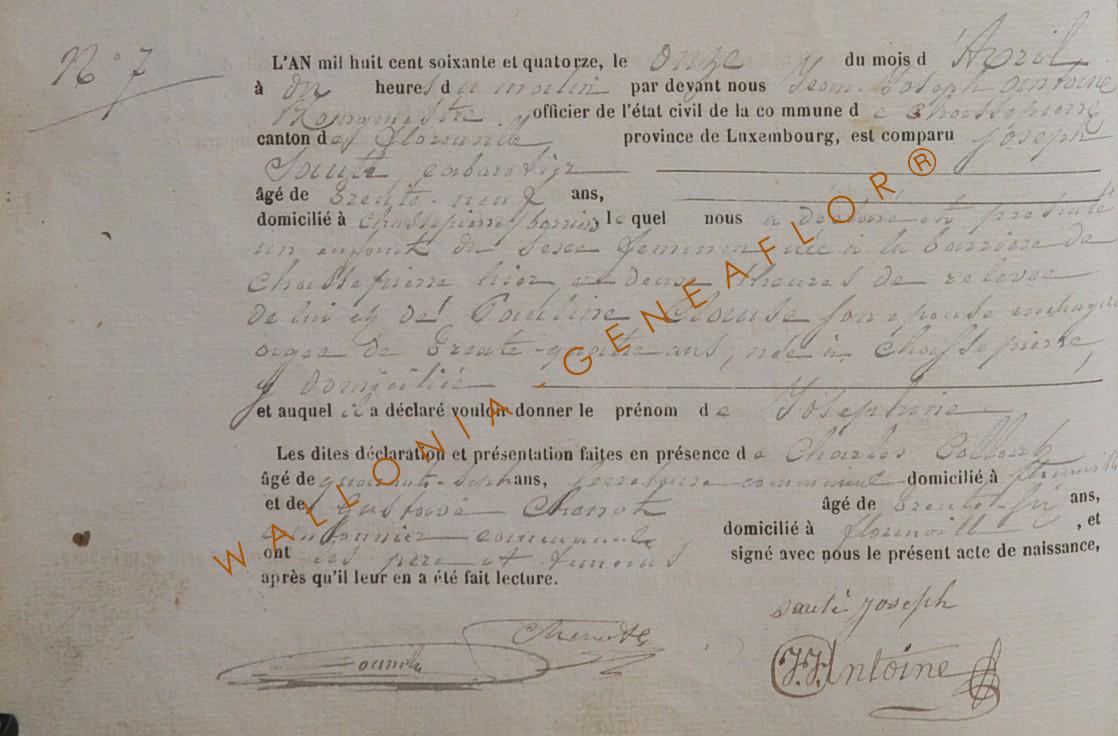 N° 7
L'AN mil huit cent soixante et quatorze, le onze du mois d'April
à dix heures du matin par devant nous Jean Joseph Antoine
Bourgmestre officier de l'état civil de la commune de Chassepierre
canton de Florenville province de Luxembourg, est comparu Joseph
Sauté cabaretier
âgé de trente-neuf ans,
domicilié à Chassepierre le quel nous a déclaré et présenté
un enfant du sexe féminin née à la barriere de
Chassepierre hier a deux heures de relevee
de lui et de Pauline Clause son epouse
agee de trente-quatre ans, née à Chassepierre
y domiciliée
et auquel il a déclaré vouloir donner le prénom de Josephine
Les dites déclaration et présentation faites en présence de Charles
âgé de quarante-sept ans, secretaire communal domicilié à Florenville
et de Gustave Chenot âgé de trente-six ans,
cantonnier communal domicilié à florenville, et
ont les père et temoins signé avec nous le présent acte de naissance,
après qu'il leur en a été fait lecture.
sauté Joseph
Chenot G
J. J. Antoine
WALLONIA - GENEAFLOR ®